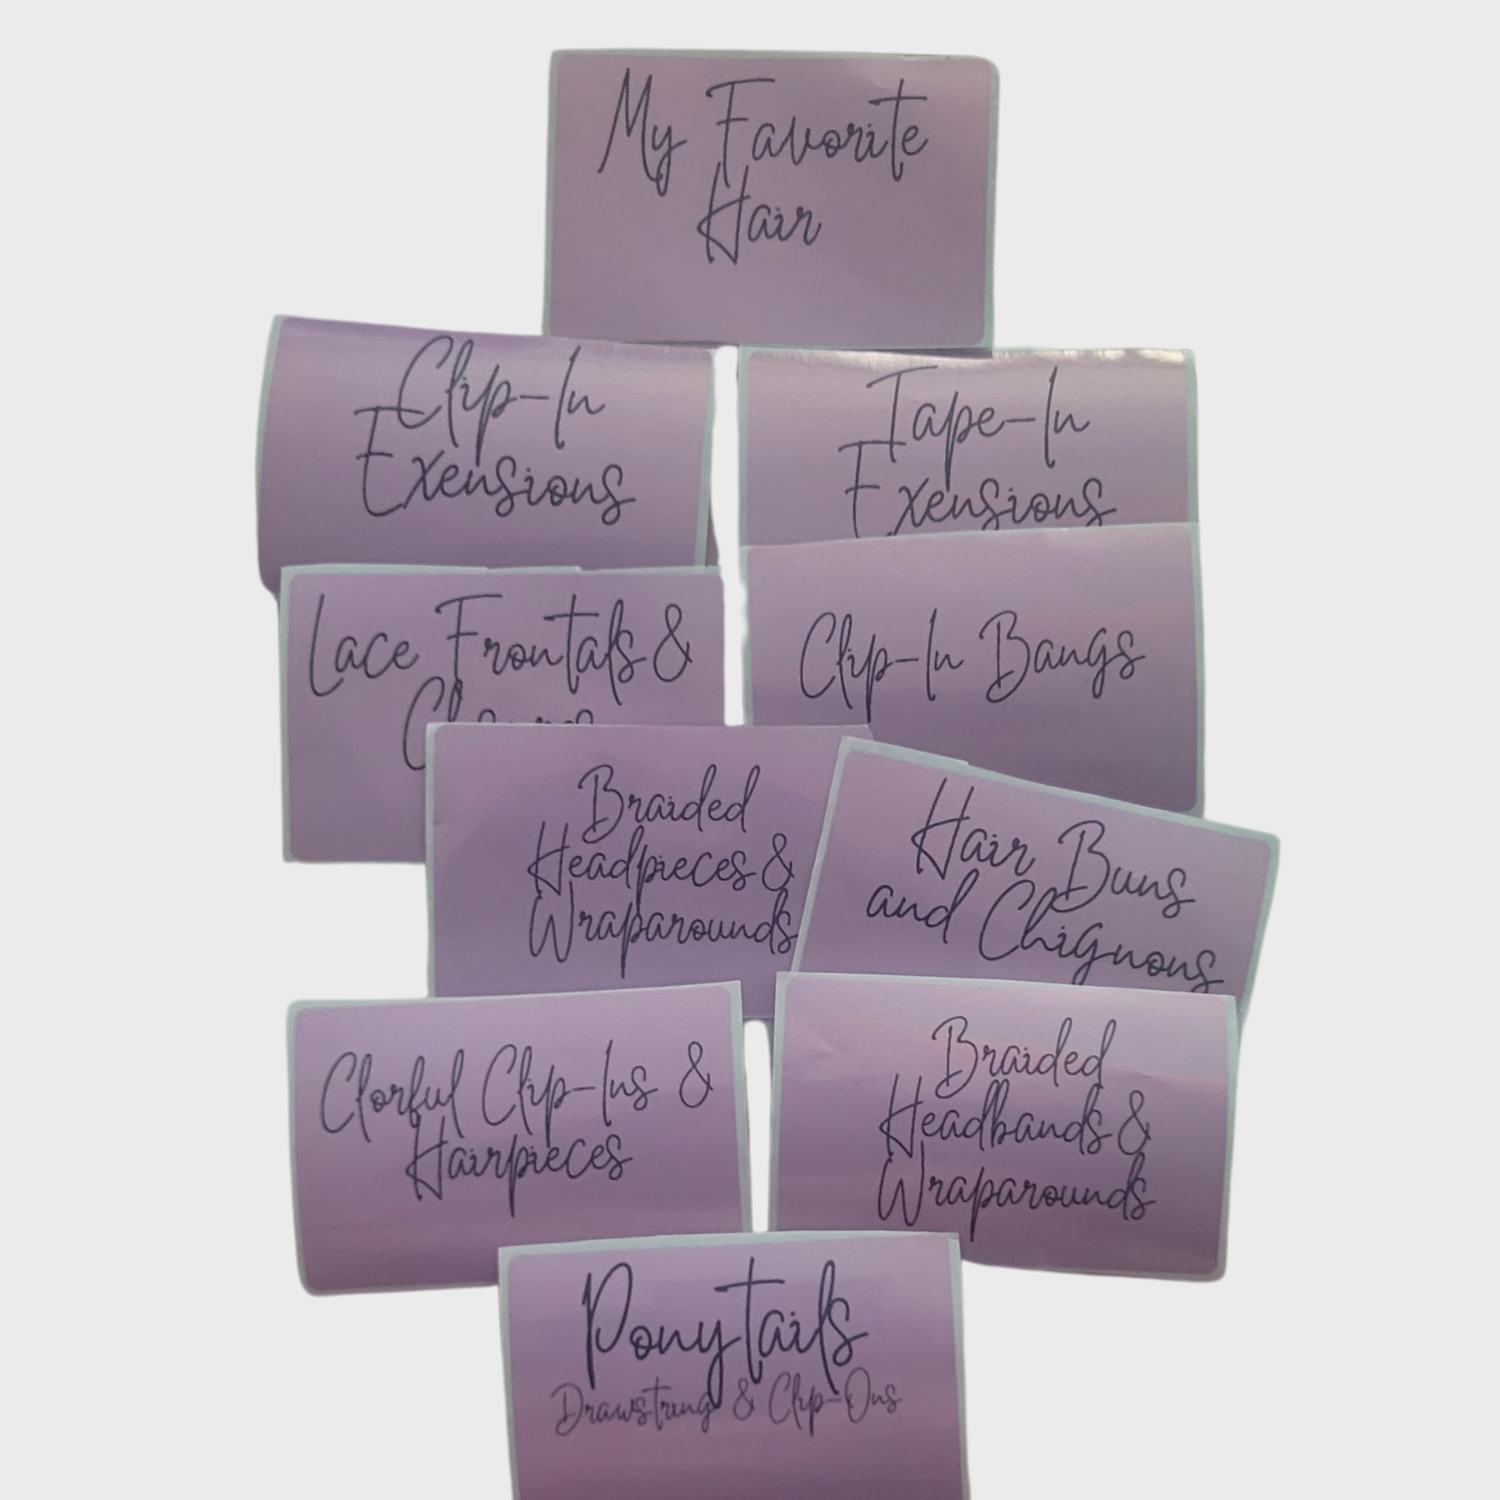 My Favorite
Hair
Clip-In
Exensions
Tape-In
Exensions
Lace Frontals &
Clip-In Bangs
Braided
Headpieces &
Wraparounds
Hair Buns
and Chignons
Clorful Clip-Ins &
Hairpieces
Braided
Headbands &
Wraparounds
Ponytails
Drawstring & Clip-Ons